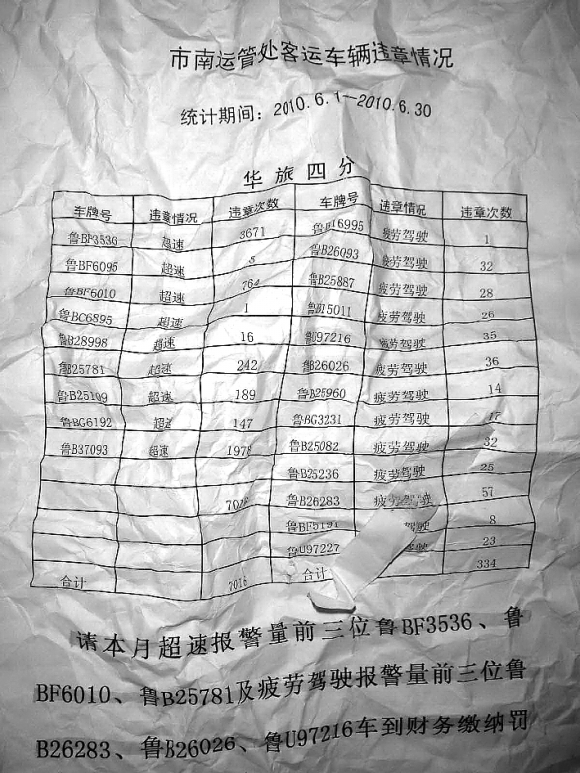 市南运管处客运车辆违章情况
统计期间：2010.6.1—2010.6.30
华旅四分
车牌号 违章情况 违章次数 车牌号 违章情况 违章次数
鲁BF3536 超速 3671 16995 疲劳驾驶 1
鲁BF6095 超速 5 鲁B26093 疲劳驾驶 32
鲁BF6010 超速 764 鲁B25887 疲劳驾驶 28
鲁BC6895 超速 1 15011 疲劳驾驶 26
鲁B28998 超速 16 鲁U97216 疲劳驾驶 35
鲁B25781 超速 242 鲁B26026 疲劳驾驶 36
鲁B25109 超速 189 鲁B25960 疲劳驾驶 14
鲁BG6192 超速 147 鲁BG3231 疲劳驾驶 17
鲁B37093 超速 1978 鲁B25082 疲劳驾驶 32
鲁B25236 疲劳驾驶 25
鲁B26283 疲劳驾驶 57
鲁BF5191 驾驶 8
鲁U97227 23
合计 7016 合计 334
请本月超速报警量前三位鲁BF3536、鲁
BF6010、鲁B25781及疲劳驾驶报警量前三位鲁
B26283、鲁B26026、鲁U97216车到财务缴纳罚